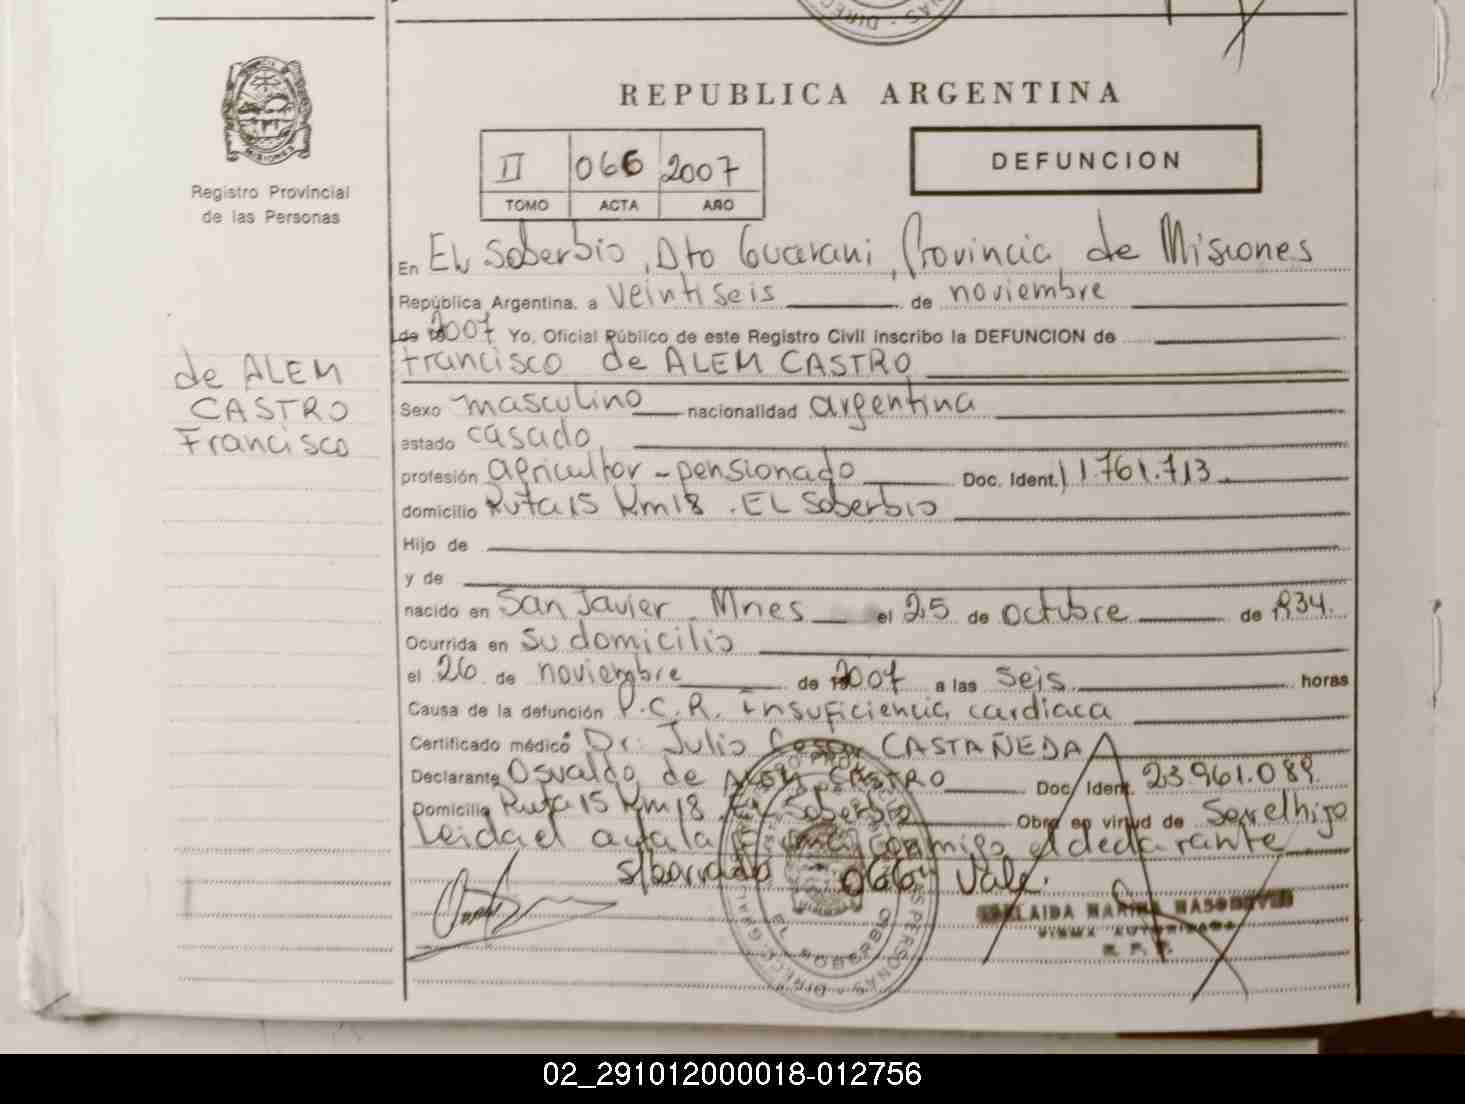 REPUBLICA ARGENTINA
Registro Provincial
de las Personas
II 066 2007
TOMO ACTA AÑO
DEFUNCION
En El Soberbio, Dto Guarani, Provincia de Misiones
República Argentina. a veintiseis de noviembre
de 2007 Yo, Oficial Público de este Registro Civil inscribo la DEFUNCION de
Francisco de ALEM CASTRO
de ALEM
CASTRO
Francisco
Sexo masculino nacionalidad argentina
estado casado
profesión agricultor - pensionado Doc. Ident. 11.761.713
domicilio Ruta 15 Km 18 . El Soberbio
Hijo de
y de
nacido en San Javier Mnes el 25 de octubre de 1934.
Ocurrida en su domicilio
el 26 de noviembre de 2007 a las seis horas
Causa de la defunción P.C.R. insuficiencia cardiaca
Certificado médico Dr. Julio Cesar CASTAÑEDA
Declarante Osvaldo de ALEM CASTRO Doc. Ident. 23961.089
Domicilio Ruta 15 Km 18 . El Soberbio Obra en virtud de ser el hijo
Leida el acta la firma conmigo el declarante
s/borrado 066 Vale.
EL SOBERBIO
02_291012000018-012756